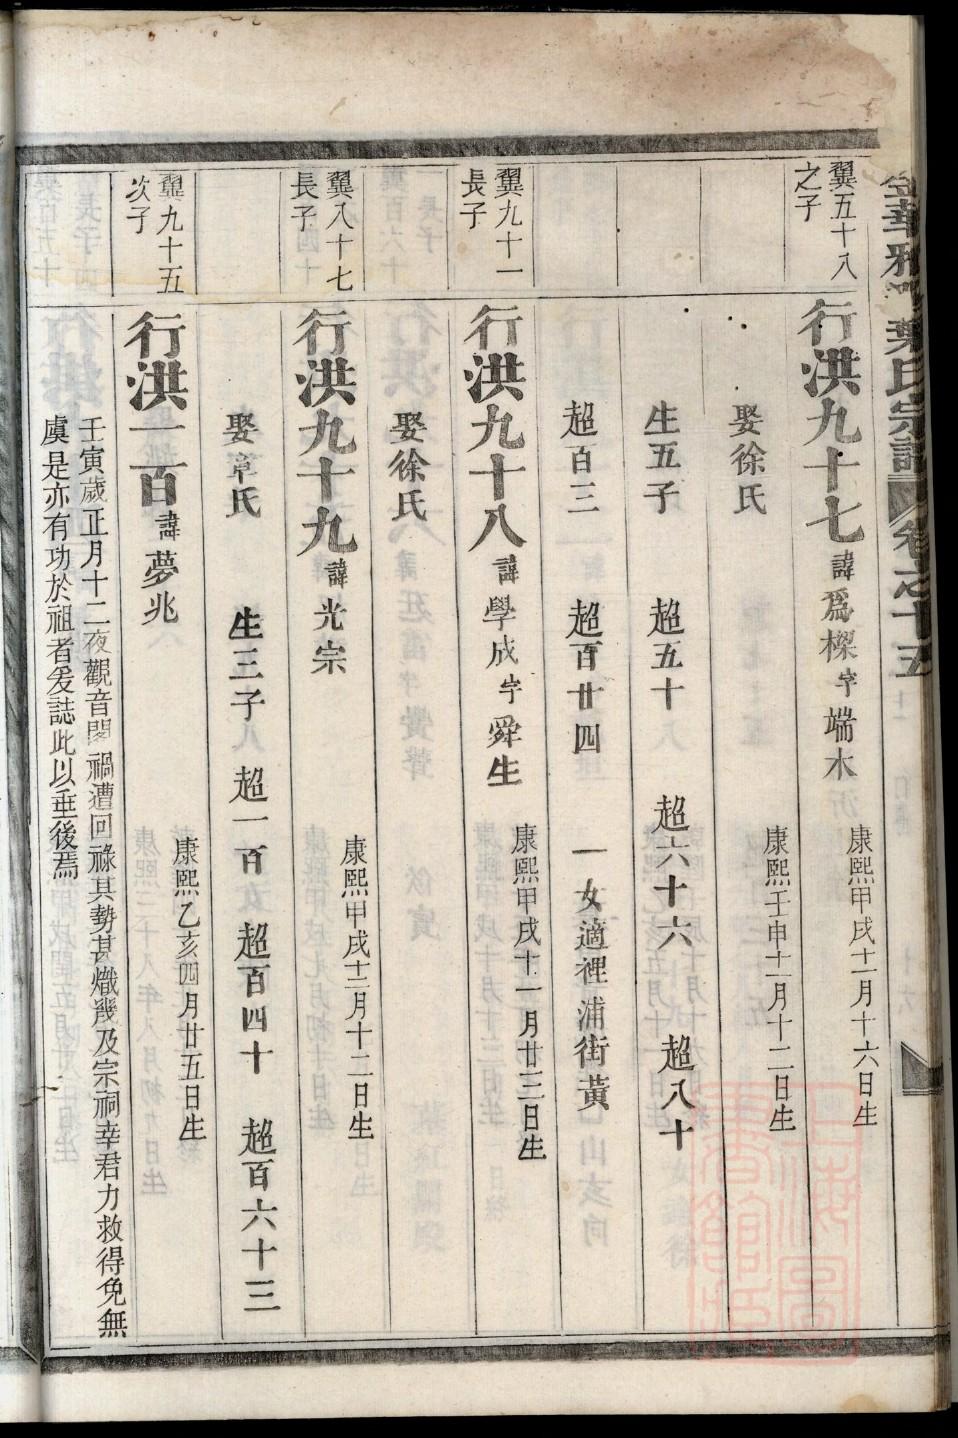 葉氏宗譜 卷之十五
翼五十八
之子
行洪九十七 諱爲樑 字端木 康熙甲戌十一月十六日生
娶徐氏 康熙壬申十一月十二日生
生五子 超五十 超六十六 超八十
超百三 超百廿四 一女適裡浦街黃
翼九十一
長子
行洪九十八 諱學成 字舜生 康熙甲戌十一月廿三日生
娶徐氏
翼八十七
長子
行洪九十九 諱光宗 康熙甲戌十二月十二日生
娶章氏 生三子 超一百 超百四十 超百六十三
翼九十五
次子
行洪一百 諱夢兆 康熙乙亥四月廿五日生
壬寅歲正月十二夜觀音閣禍遭回祿其勢甚熾幾及宗祠幸君力救得免無
虞是亦有功於祖者爰誌此以垂後焉